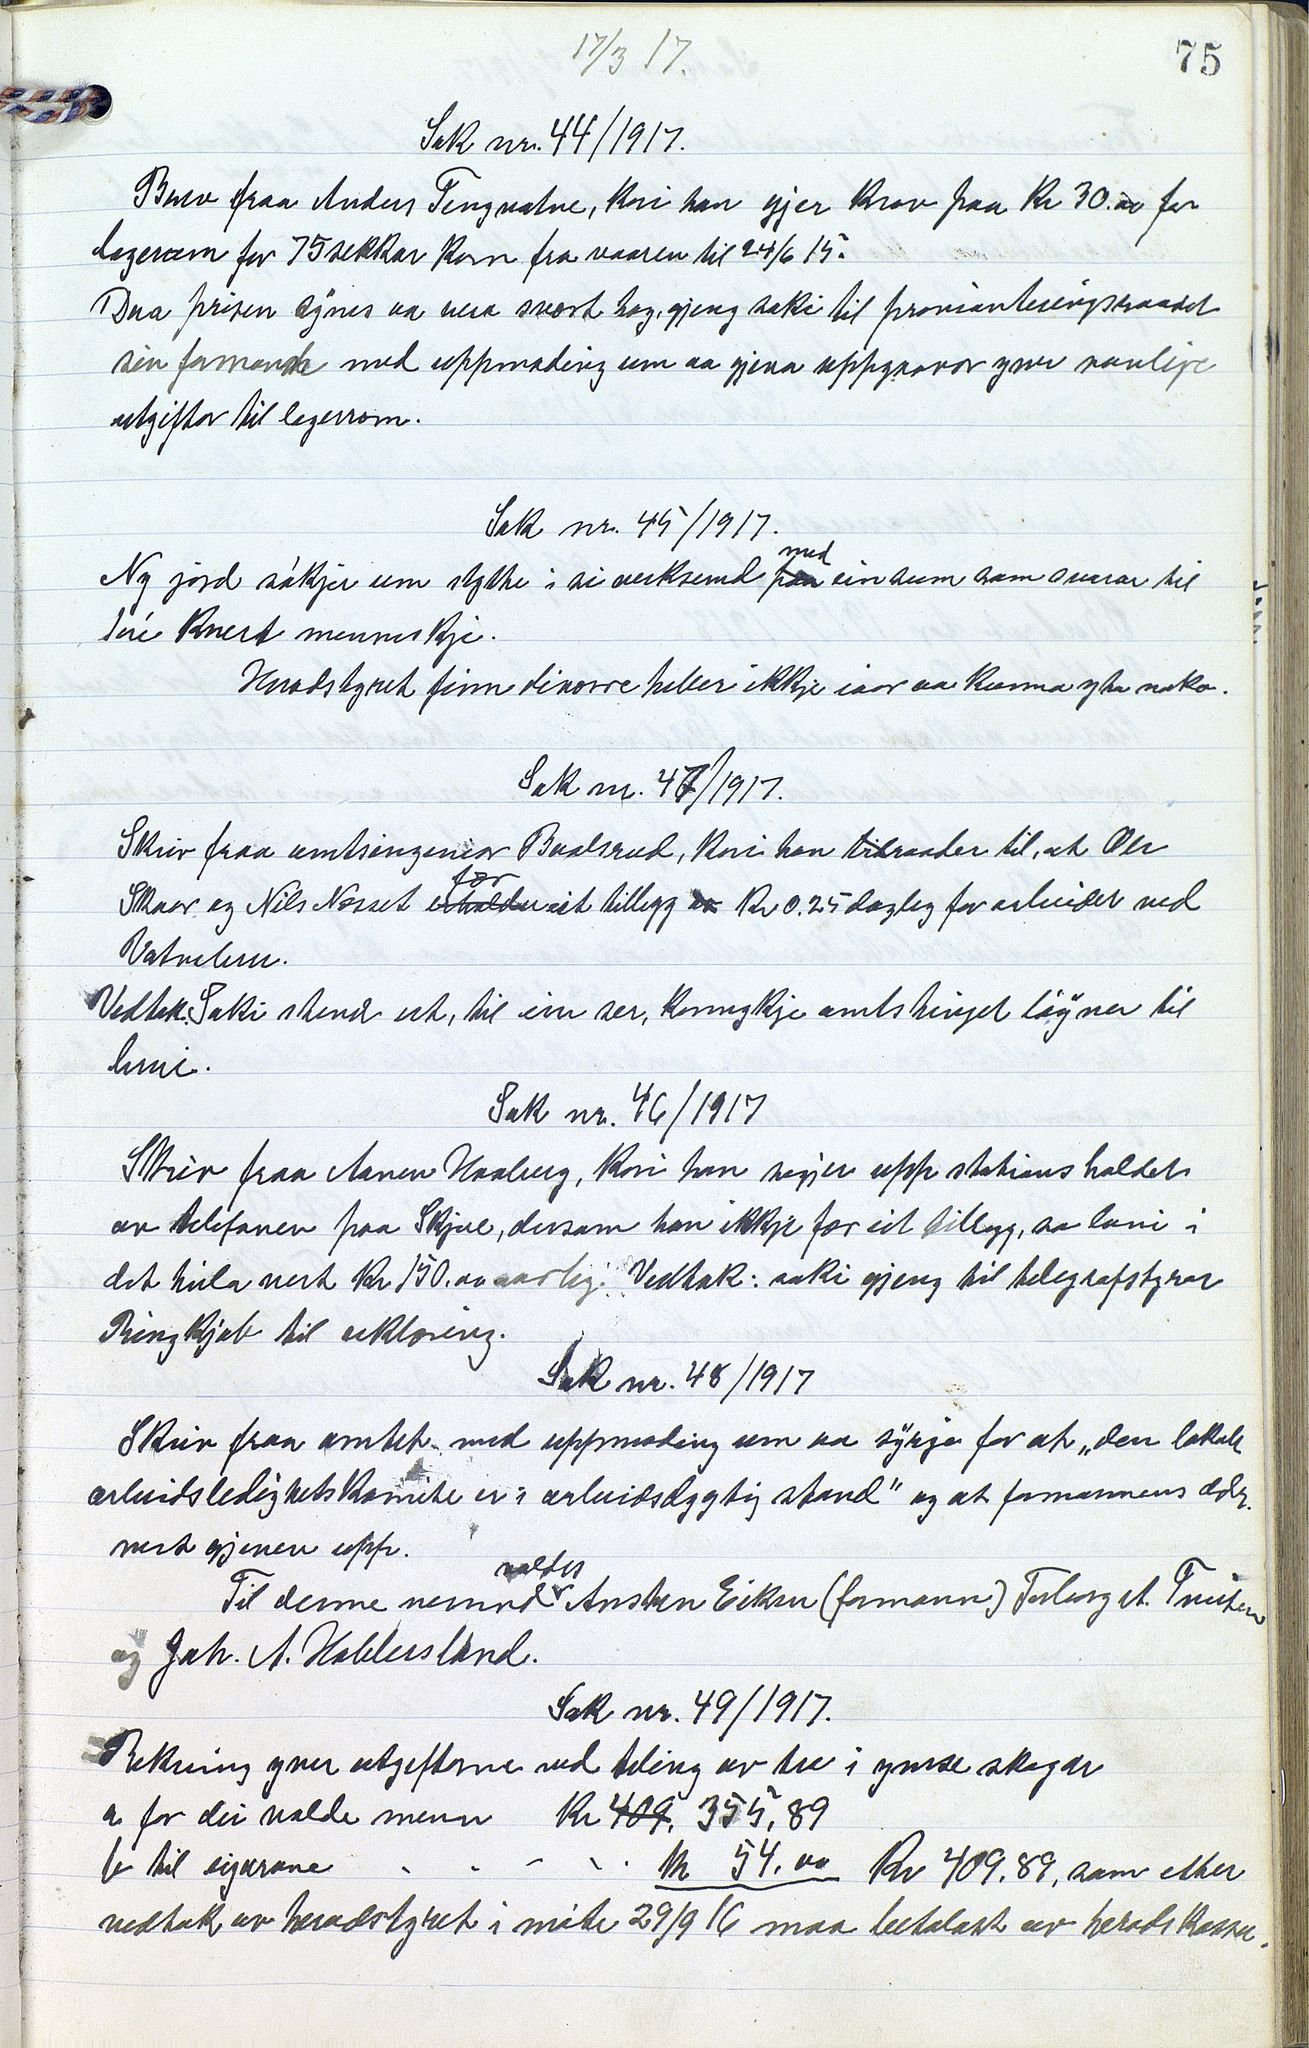 75
17/3 17.
Sak nr. 44/1917.
Brev fraa Anders Tengvatne, kori han gjer krav paa Kr 30.00 for
lagerom for 75 sekkar korn fra vaaren til 24/6 15.
Daa prisen synes aa vera svært høg, gjeng saki til provianteringsraadet
sin formand med uppmoding um aa gjeva uppgaavor yver vanlige
utgiftor til lagerrom.
Sak nr. 45/1917.
Ny jord søkjer um stytte i si verksemd paa med ein sum som svarar til
1 øre kvert menneskje.
Heradstyret finn diverre heller ikkje iaar aa kunna yta noko.
Sak nr. 47/1917.
Skriv fraa amtsingeniør Baalsrud, kori han tilraader til, at Ole
Skaar og Nils Nesset erholder fær eit tillegg av Kr 0.25 dagleg for arbeidet ved
Vatneleren.
Vedtak: Saki stend ut, til ein ser, korungkje amtstinget løyver til
leine.
Sak nr. 46/1917
Skriv fraa Aanen Haaberg, kori han segjer upp stationshaldet
av telefonen paa Skjeve, dersom han ikkje fær eit tillegg, so løni i
det heila vert Kr 150.00 aarleg. Vedtak: saki gjeng til telegrafstyrar
Ringkjøb til erklæring.
Sak nr. 48/1917
Skriv fraa amtet med uppmoding um aa syrgja for at „den lokale
arbeidsledighetskomite er i arbeidsdygtig stand" og at formannens adr.
vert gjeven upp.
Til denne nemnd valdes Ansten Eiken (formann) Torborg st. Tveiten
og Joh. A. Hallersland.
Sak nr. 49/1917.
Rekning yver utgiftorne ved teling av tre i ymse skogar
a for dei valde menn Kr 409, 355,89
b til eigarane - - - - . Kr 54.00 Kr 409.89, som etter
vedtak av heradstyret i møte 29/9 16 maa betalast av heradskassa.